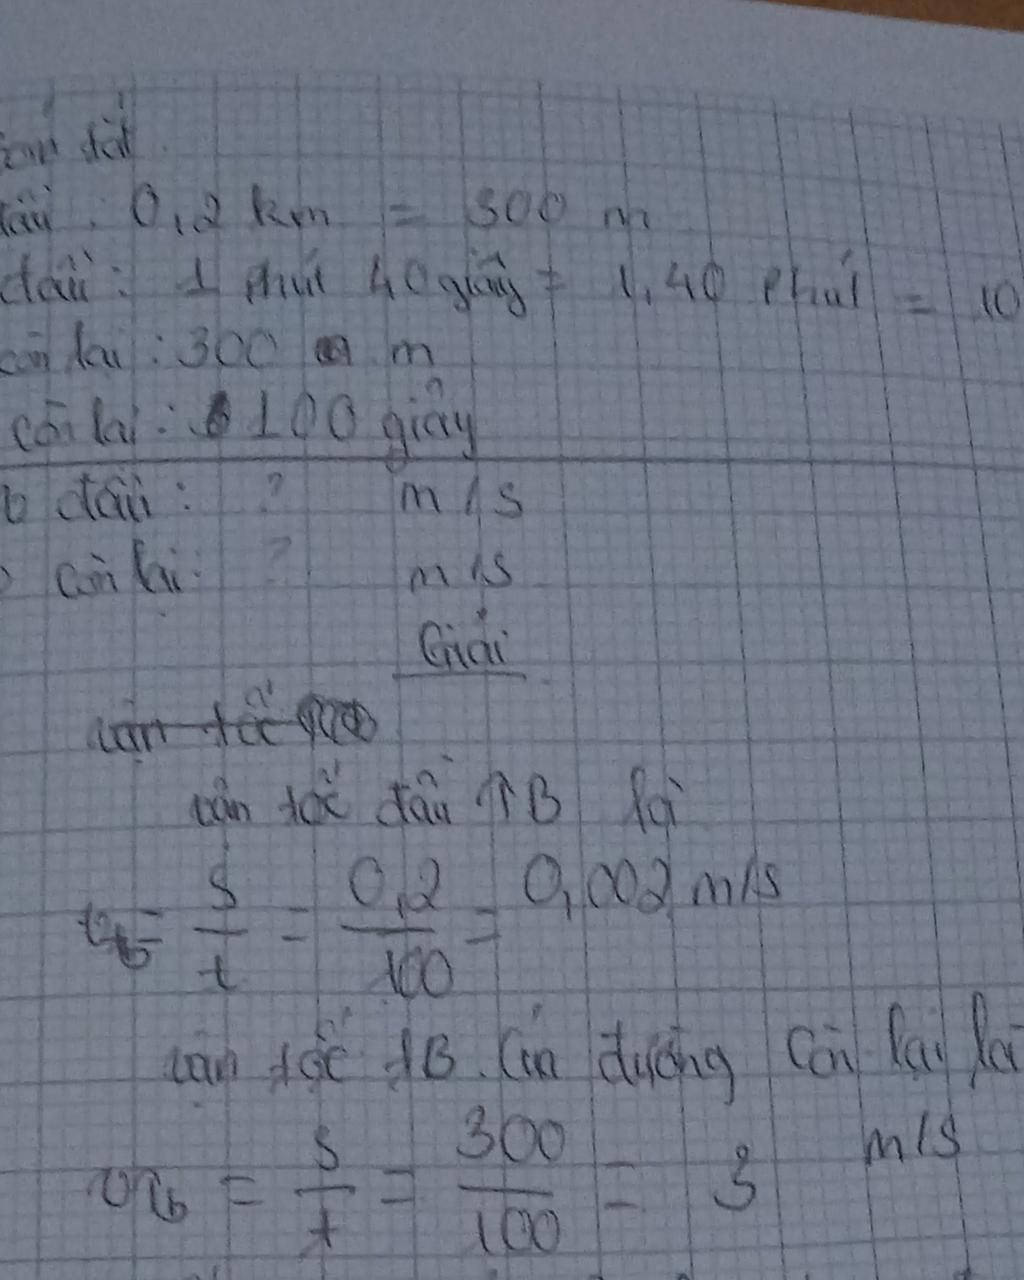 tóm tắt
đầu: 0,2 km = 300 m
đầu: 1 phút 40 giây = 1,40 phút = 10
còn lại: 300 m
còn lại: 100 giây
b đầu: ? m/s
còn lại: ? m/s
Giải
vận tốc
vận tốc đầu TB là
= s/t = 0,2/100 = 0,002 m/s
vận tốc tB. đường còn lại là
vTb = s/t = 300/100 = 3 m/s